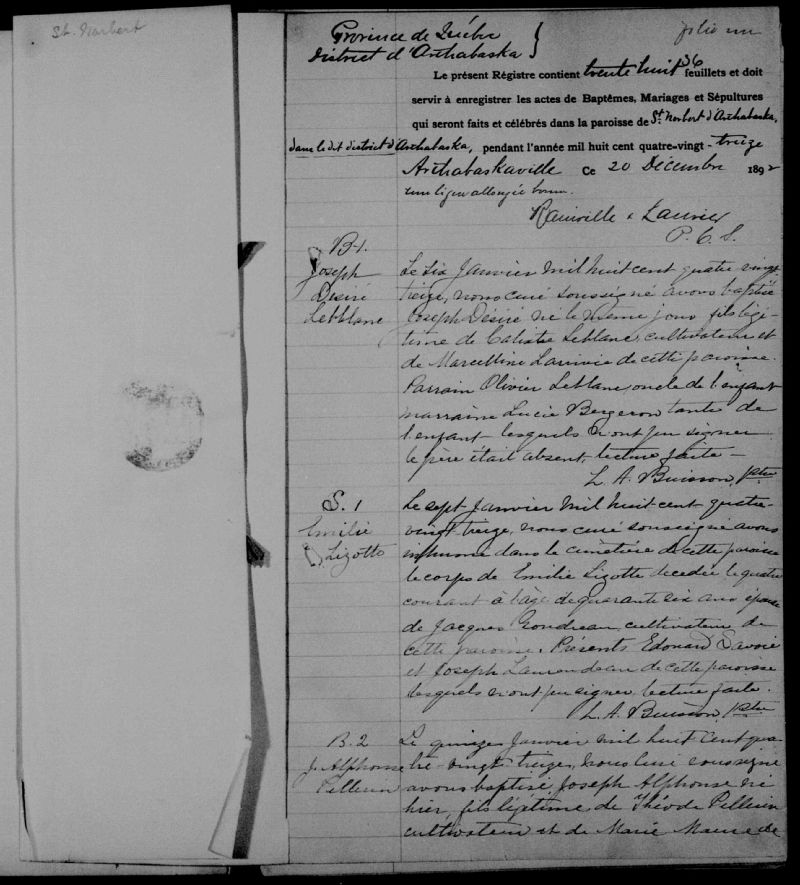 St. Norbert
folio un
Province de Québec
District d'Arthabaska
Le présent Régistre contient trente huit 36 feuillets et doit
servir à enregistrer les actes de Baptêmes, Mariages et Sépultures
qui seront faits et célébrés dans la paroisse de St. Norbert d'Arthabaska,
dans le dit district d'Arthabaska, pendant l'année mil huit cent quatre-vingt-treize
Arthabaskaville Ce 20 Décembre 1892
une ligne allongée bonne.
Rainville & Laurier
P. C. S.
B-1.
Joseph
Désiré
Lebblanc
Le six Janvier mil huit cent quatre vingt
treize, nous curé soussigné avons baptisé
Joseph Désiré né le même jour fils légi-
time de Calixte Leblanc, cultivateur et
de Marcelline Larivée de cette paroisse.
Parrain Olivier Leblanc, oncle de l'enfant
marraine Lucie Bergeron tante de
l'enfant lesquels n'ont pu signer
le père était absent, lecture faite -
L. A. Buisson, ptre
S. 1
Emilie
Lizotte
Le sept Janvier mil huit cent quatre-
vingt treize, nous curé soussigné avons
inhumé dans le cimetière de cette paroisse
le corps de Emilie Lizotte decedée le quatre
courant à l'âge de quarante six ans épouse
de Jacques Goudreau, cultivateur de
cette paroisse. Présents Edouard Savoie
et Joseph Laurendeau de cette paroisse
lesquels n'ont pu signer, lecture faite.
L. A. Buisson, ptre
B. 2
J. Alphonse
Pellerin
Le quinze Janvier mil huit cent qua-
tre-vingt-treize, nous curé soussigné
avons baptisé Joseph Alphonse né
hier, fils légitime de Théode Pellerin
cultivateur et de Marie